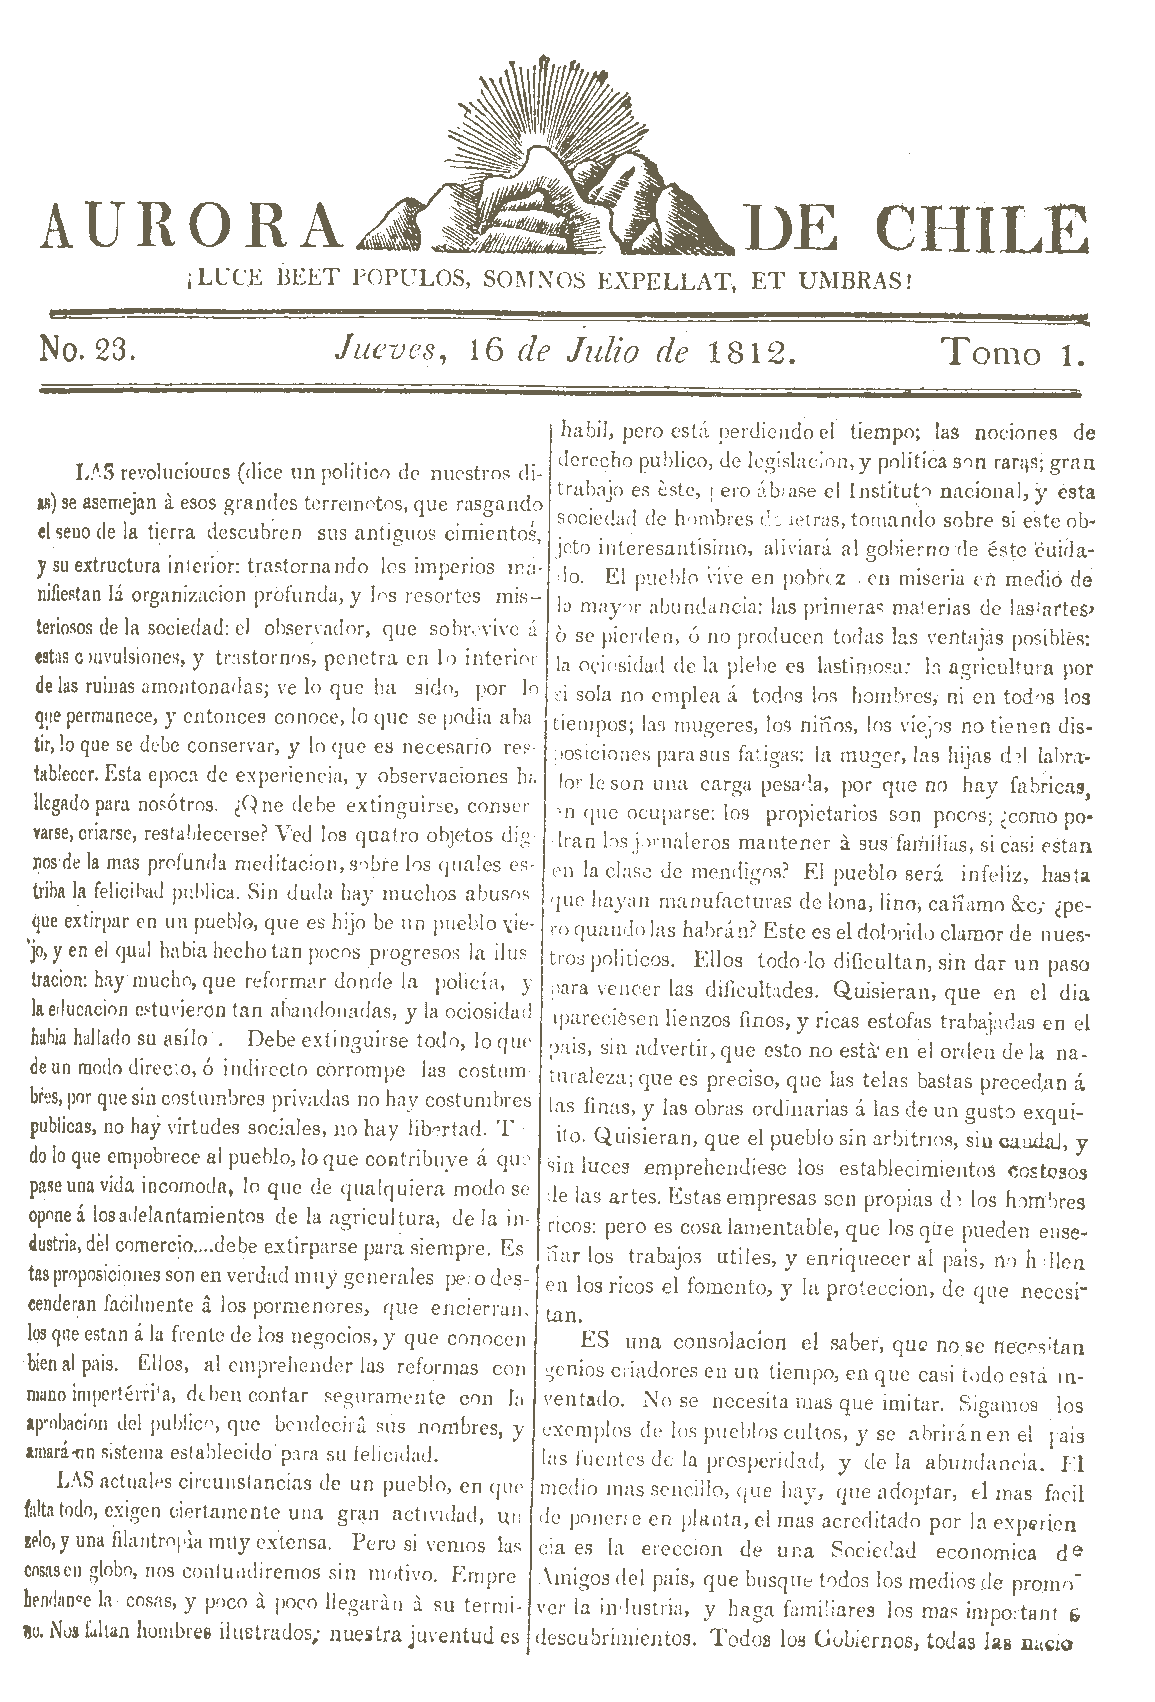 AURORA DE CHILE
¡LUCE BEET POPULOS, SOMNOS EXPELLAT, ET UMBRAS!
No. 23. Jueves, 16 de Julio de 1812. Tomo 1.
LAS revoluciones (dice un politico de nuestros di-
as) se asemejan à esos grandes terremotos, que rasgando
el seno de la tierra descubren sus antiguos cimientos,
y su extructura interior: trastornando los imperios ma-
nifiestan lá organizacion profunda, y los resortes mis-
teriosos de la sociedad: el observador, que sobrevive á
estas convulsiones, y trastornos, penetra en lo interior
de las ruinas amontonadas; ve lo que ha sido, por lo
que permanece, y entonces conoce, lo que se podia aba
tir, lo que se debe conservar, y lo que es necesario res-
tablecer. Esta epoca de experiencia, y observaciones ha
llegado para nosótros. ¿Qne debe extinguirse, conser
varse, criarse, restablecerse? Ved los quatro objetos dig
nos de la mas profunda meditacion, sobre los quales es-
triba la felicibad publica. Sin duda hay muchos abusos
que extirpar en un pueblo, que es hijo be un pueblo vie-
jo, y en el qual habia hecho tan pocos progresos la ilus
tracion: hay mucho, que reformar donde la policía, y
la educacion estuvieron tan abandonadas, y la ociosidad
habia hallado su asílo. Debe extinguirse todo, lo que
de un modo directo, ó indirecto corrompe las costum
bres, por que sin costumbres privadas no hay costumbres
publicas, no hay virtudes sociales, no hay libertad. T
do lo que empobrece al pueblo, lo que contribuye á que
pase una vida incomoda, lo que de qualquiera modo se
opone á los adelantamientos de la agricultura, de la in-
dustria, dèl comercio....debe extirparse para siempre. Es
tas proposiciones son en verdad muy generales pero des-
cenderan facilmente â los pormenores, que encierran,
los que estan á la frente de los negocios, y que conocen
bien al pais. Ellos, al emprehender las reformas con
mano impertérrita, deben contar seguramente con la
aprobacion del publico, que bendecirâ sus nombres, y
amará un sistema establecido para su felicidad.
LAS actuales circunstancias de un pueblo, en que
falta todo, exigen ciertamente una gran actividad, un
zelo, y una filantropìa muy extensa. Pero si vemos las
cosas en globo, nos confundiremos sin motivo. Empre
hendanse las cosas, y poco à poco llegaràn à su termi-
no. Nos faltan hombres ilustrados; nuestra juventud es
habil, pero está perdiendo el tiempo; las nociones de
derecho publico, de legislacion, y politica son raras; gran
trabajo es èste, pero ábrase el Instituto nacional, y esta
sociedad de hombres de letras, tomando sobre si este ob-
jeto interesantísimo, aliviará al gobierno de éste cuida-
do. El pueblo vive en pobrez en miseria en medio de
la mayor abundancia: las primeras materias de las artes,
ò se pierden, ó no producen todas las ventajas posibles:
la ociosidad de la plebe es lastimosa: la agricultura por
si sola no emplea á todos los hombres, ni en todos los
tiempos; las mugeres, los niños, los viejos no tienen dis-
posiciones para sus fatigas: la muger, las hijas del labra-
dor le son una carga pesada, por que no hay fabricas,
en que ocuparse: los propietarios son pocos; ¿como po-
dran los jornaleros mantener à sus familias, si casi estan
en la clase de mendigos? El pueblo será infeliz, hasta
que hayan manufacturas de lona, lino, cañamo &c; ¿pe-
ro quando las habrán? Este es el dolorido clamor de nues-
tros politicos. Ellos todo lo dificultan, sin dar un paso
para vencer las dificultades. Quisieran, que en el dia
apareciésen lienzos finos, y ricas estofas trabajadas en el
pais, sin advertir, que esto no està en el orden de la na-
turaleza; que es preciso, que las telas bastas precedan á
las finas, y las obras ordinarias á las de un gusto exqui
ito. Quisieran, que el pueblo sin arbitrios, sin caudal, y
sin luces emprehendiese los establecimientos costosos
de las artes. Estas empresas son propias de los hombres
ricos: pero es cosa lamentable, que los que pueden ense-
ñar los trabajos utiles, y enriquecer al pais, no hallen
en los ricos el fomento, y la proteccion, de que necesi-
tan.
ES una consolacion el saber, que no se necesitan
genios criadores en un tiempo, en que casi todo está in-
ventado. No se necesita mas que imitar. Sigamos los
exemplos de los pueblos cultos, y se abrirán en el pais
las fuentes de la prosperidad, y de la abundancia. El
medio mas sencillo, que hay, que adoptar, el mas facil
de ponerse en planta, el mas acreditado por la experien
cia es la ereccion de una Sociedad economica de
Amigos del pais, que busque todos los medios de promo-
ver la industria, y haga familiares los mas important s
descubrimientos. Todos los Gobiernos, todas las nacio